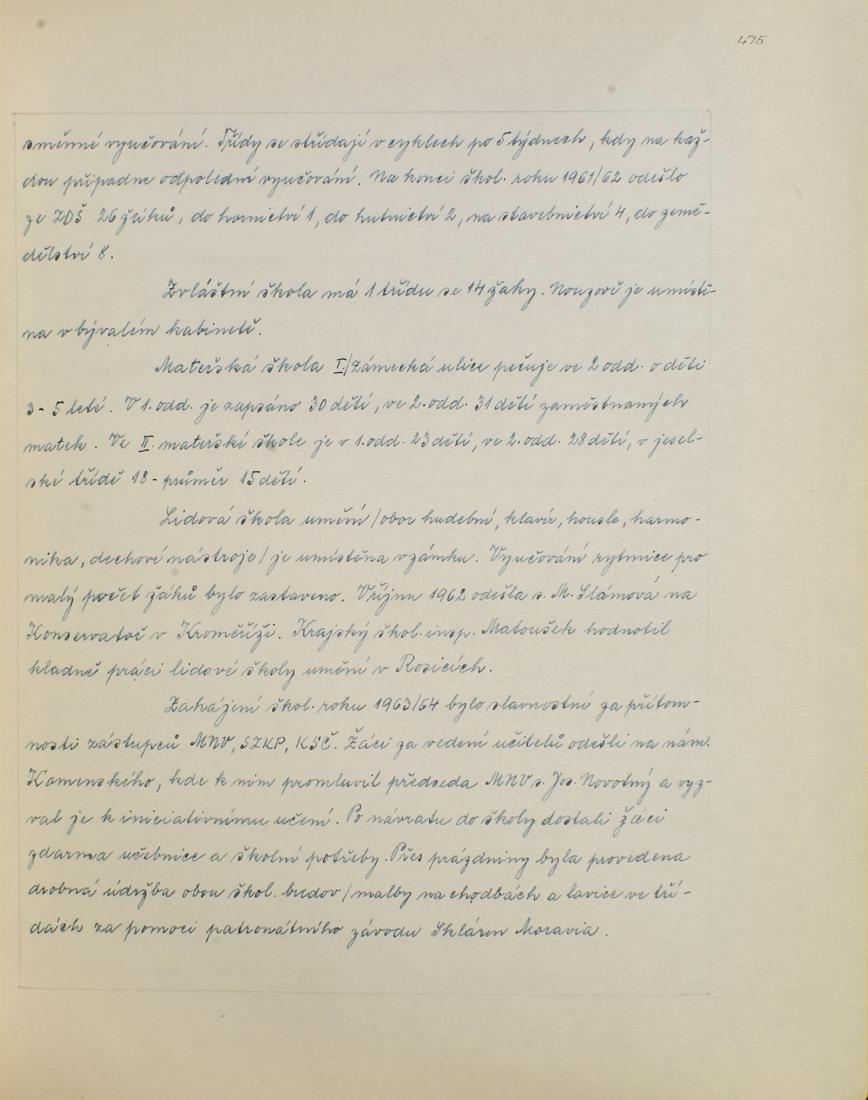 475
směnné vyučování. Třídy se střídají v cyklech po 5 týdnech, kdy na kaž-
dou připadne odpolední vyučování. Na konci škol. roku 1961/62 odešlo
ze ZDŠ 26 žáků, do hornictví 1, do hutnictví 2, na stavebnictví 4, do země-
dělství 8.
Zvláštní škola má 1 třídu se 14 žaky. Nouzově je umístě-
na v bývalém kabinetě.
Mateřská škola I/Zámecká ulice pečuje ve 2 odd. o děti
3-5 leté. V 1. odd. je zapsáno 30 dětí, ve 2. odd. 31 dětí zaměstnaných
matek. Ve II. mateřské škole je v 1. odd. 23 dětí, ve 2. odd. 28 dětí, v jesel-
ské třídě 18 - průměr 15 dětí.
Lidová škola umění /obor hudební, klavír, housle, harmo-
nika, dechové nástroje/ je umístěna v zámku. Vyučování rytmice pro
malý počet žáků bylo zastaveno. V říjnu 1962 odešla s. M. Slámová na
Konservatoř v Kroměříži. Krajský škol. insp. Matoušek hodnotil
kladně práci lidové školy umění v Rosicích.
Zahájení škol. roku 1963/64 bylo slavnostní za přítom-
nosti zástupců MNV, SZKP, KSČ. Žáci za vedení učitelů odešli na nám.
Komenského, kde k nim promluvil předseda MNV s. Jos. Novotný a vyz-
val je k iniciativnímu učení. Po návratu do školy dostali žáci
zdarma učebnice a školní potřeby. Přes prázdniny byla provedena
drobná údržba obou škol. budov /malby na chodbách a lavice ve tří-
dách za pomoci patronátního závodu Skláren Moravia.